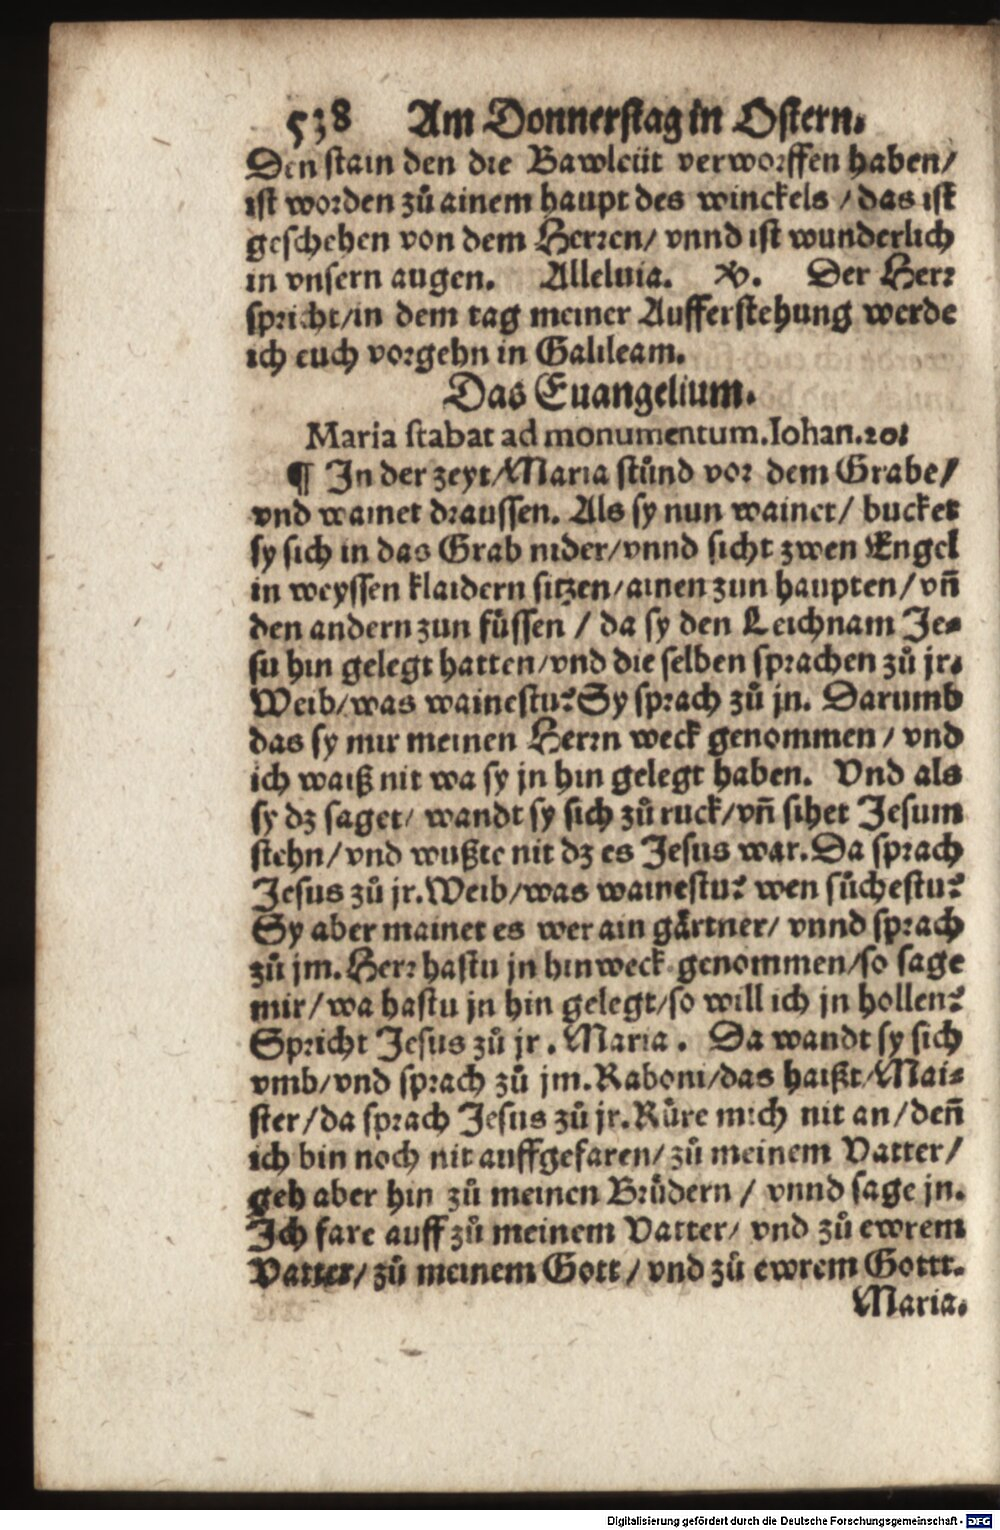 538 Am Donnerstag in Ostern.
Den stain den die Bawleüt verworffen haben/
ist worden zů ainem haupt des winckels / das ist
geschehen von dem Herren/ vnnd ist wunderlich
in vnsern augen. Alleluia. ℣. Der Herr
spricht/in dem tag meiner Aufferstehung werde
ich euch vorgehn in Galileam.
Das Euangelium.
Maria stabat ad monumentum.Iohan.20.
¶ In der zeyt/Maria stůnd vor dem Grabe/
vnd wainet draussen. Als sy nun wainet/ bucket
sy sich in das Grab nider/vnnd sicht zwen Engel
in weyssen klaidern sitzen/ainen zun haupten/ vñ
den andern zun füssen / da sy den Leichnam Je-
su hin gelegt hatten/vnd die selben sprachen zů jr.
Weib/was wainestu? Sy sprach zů jn. Darumb
das sy mir meinen Herrn weck genommen / vnd
ich waiß nit wa sy jn hin gelegt haben. Vnd als
sy dz saget/ wandt sy sich zů ruck/vñ sihet Jesum
stehn/vnd wußte nit dz es Jesus war. Da sprach
Jesus zů jr. Weib/was wainestu? wen sůchestu?
Sy aber mainet es wer ain gårtner/ vnnd sprach
zů jm. Herr hastu jn hinweck genommen/so sage
mir/wa hastu jn hin gelegt/so will ich jn hollen?
Spricht Jesus zů jr. Maria. Da wandt sy sich
vmb/vnd sprach zů jm. Raboni/das haißt/Mai-
ster/da sprach Jesus zů jr. Rüre mich nit an/deñ
ich bin noch nit auffgefaren/ zů meinem Vatter/
geh aber hin zů meinen Brüdern / vnnd sage jn.
Ich fare auff zů meinem Vatter/ vnd zů ewrem
Vatter/ zů meinem Gott / vnd zů ewrem Gottt.
Maria.
Digitalisierung gefördert durch die Deutsche Forschungsgemeinschaft - DFG